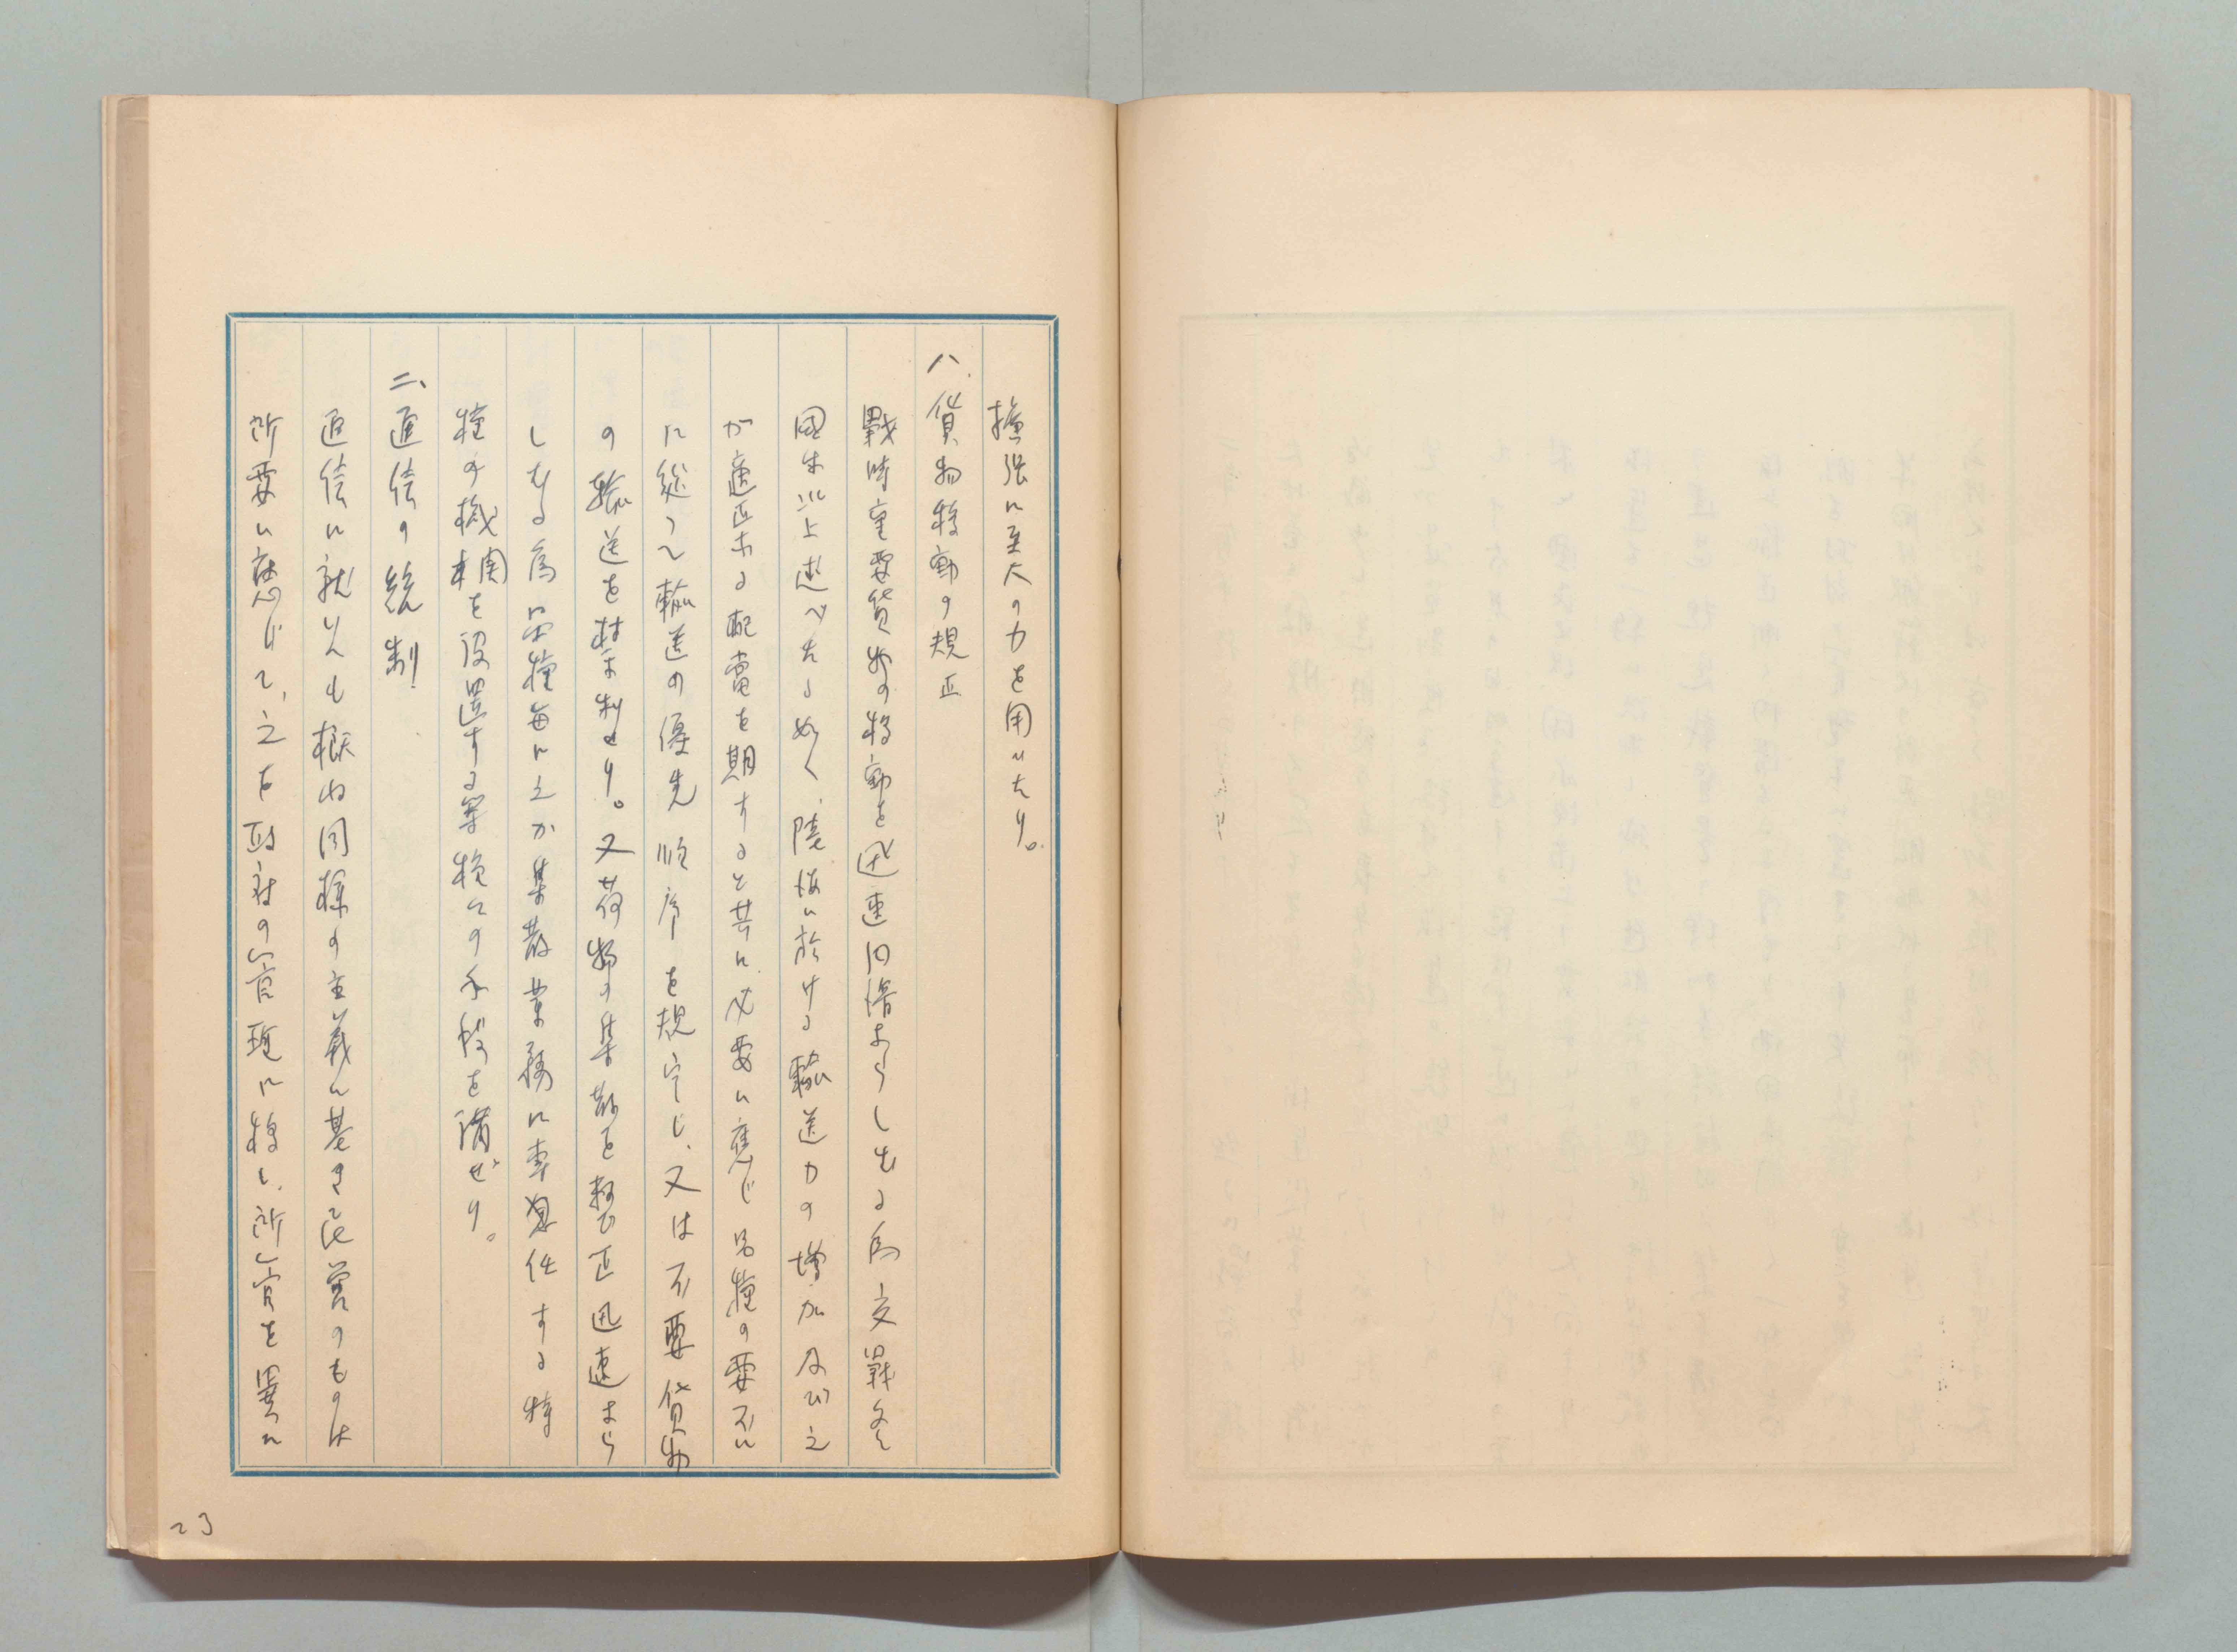 擴張に至大の力を用ひたり。
ハ、貨物移動の規正
戰時重要貨物の移動を迅速円滑ならしむる為交戰各
國は以上述べたる如く、陸海に於ける輸送力の増加及び之
が適正なる配當を期すると共に、必要に應じ品種の要不に
に從つて輸送の優先順序を規定し、又は不要貨物
の輸送を禁制せり。又荷物の集散を整正迅速なら
しむる為に品種毎に之が集散業務に専任する特
種の機関を設置する等種々の手段を講ぜり。
二、通信の統制
通信に就いても概ね同様の主義に基き民営のものは
所要に應じて、之を政府の管理に移し、所管を異に
23